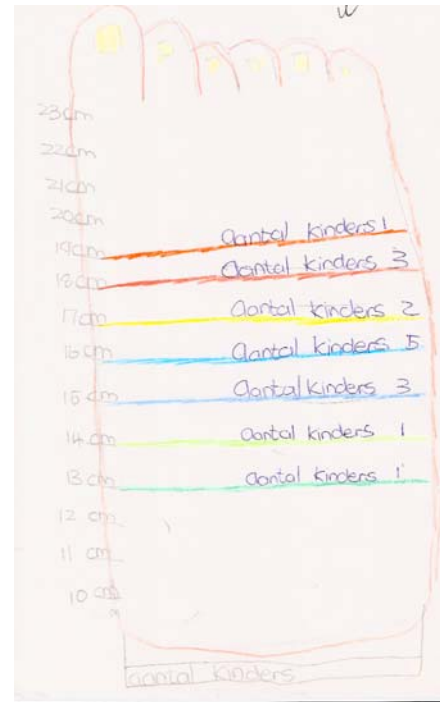 23cm
22cm
21cm
20cm
Aantal kinders 1
19cm
Aantal kinders 3
18cm
Aantal kinders 2
17cm
Aantal kinders 5
16cm
Aantal kinders 3
15cm
Aantal kinders 1
14cm
Aantal kinders 1
13cm
12 cm
11 cm
10 cm
aantal kinders